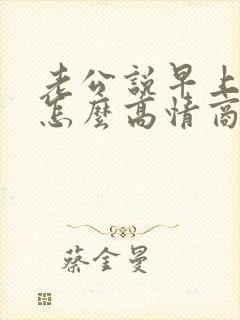 老公說早上
怎麼高情商
蔡金曼